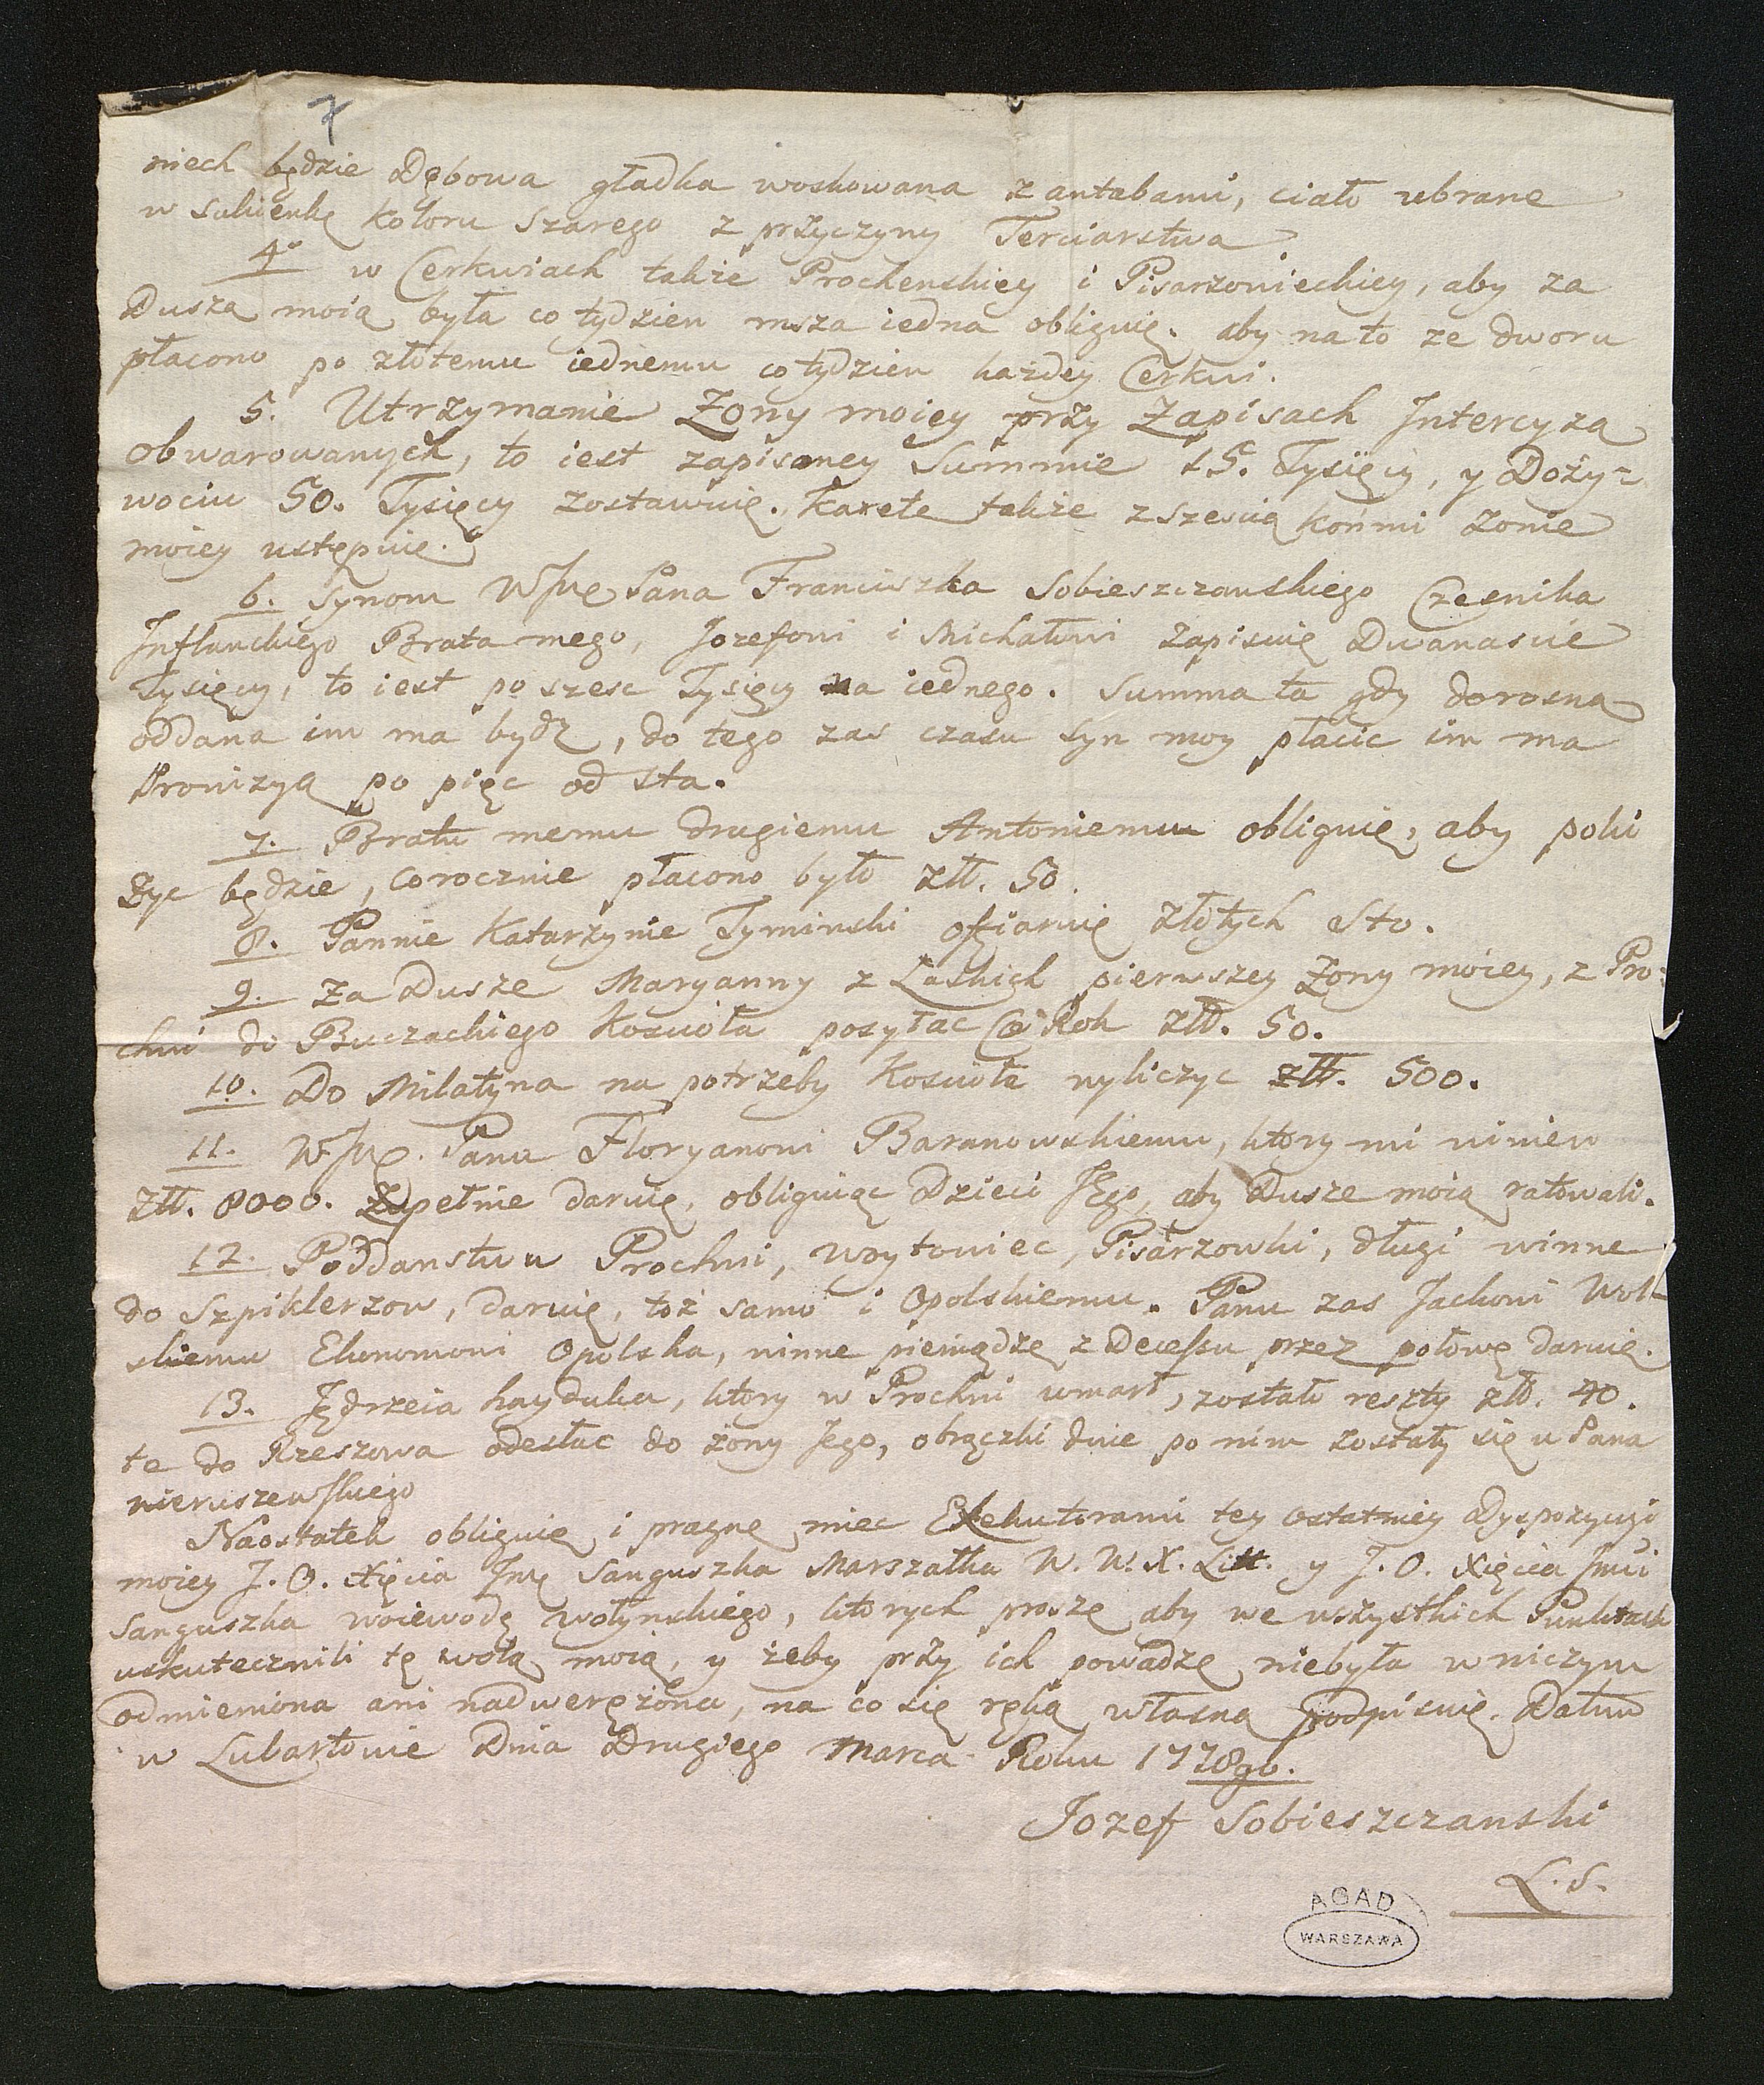 7
niech będzie Dębowa gładka woskowana z antabami, ciało ubrane
w Sukienkę koloru Szarego z przyczyny Terciarstwa
4º w Cerkwiach także Prochenskiey i Pisarzowieckiey, aby za
Duszą moią była co tydzien msza iedna obliguię. aby na to ze dworu
płacono po złotemu iednemu co tydzien każdey Cerkwi.
5. Utrzymanie Żony moiey przy Zapisach Intercyzą
obwarowanych, to iest zapisaney Summie 15. Tysięcy, y Doży=
wociu 50. Tysięcy zostawuię. Karete także z szescią końmi żonie
moiey ustępuię.
6. Synom WJmę Pana Franciszka Sobieszczanskiego Czesnika
Inflanckiego Brata mego, Jozefowi i Michałowi zapisuię Dwanascie
Tysięcy, to iest po szesc Tysięcy na iednego. Summa ta gdy dorosną
oddana im ma bydz, do tego zas czasu syn moy płacic im ma
Prowizyą po pięc od sta.
7. Bratu memu drugiemu Antoniemu obliguię, aby poki
życ będzie, corocznie płacono było złł. 50.
8. Pannie Katarzynie Tyminski offiaruię złotych Sto.
9. Za Dusze Maryanny z Laskich pierwszey Żony moiey, z Pro=
chni do Buczackiego Koscioła posyłac Co Rok złł. 50.
10. Do Milatyna na potrzeby Koscioła wyliczyc złł. 500.
11. WJmę. Panu Floryanowi Baranowskiemu, ktory mi winien
złł. 8000. Zupełnie daruię, obliguiąc Dzieci Jego, aby Dusze moią ratowali.
12. Poddanstwu Prochni, Woytowiec, Pisarzowki, długi winne
do Szpiklerzow, daruię, toż samo i Opolskiemu. Panu zas Jackowi Wol-
skiemu Ekonomowi Opolska, winne pieniądze z Decessu przez połowę daruię.
13. Jędrzeia hayduka, ktory w Prochni umarł, zostało reszty złł. 40.
te do Rzeszowa odesłac do żony Jego, obrączki dwie po nim zostały się u Pana
Wieruszewskiego
Naostatek obliguię i pragnę miec Exekutorami tey ostatniey Dyspozycyi
moiey J. O. Xięcia Jmę Sanguszka Marszałka W. W. X. Litt. y J. O. Xięcia Jmci
Sanguszka woiewodę wołynskiego, ktorych proszę aby we wszystkich Punktach
uskutecznili tę wolą moią, y żeby przy ich powadze niebyła w niczym
odmieniona ani nadwerężona, na co się ręką własną podpisuię. Datum
w Lubartowie Dnia Drugiego Marca Roku 1778go.
Jozef Sobieszczanski
L. S.
AGAD
WARSZAWA